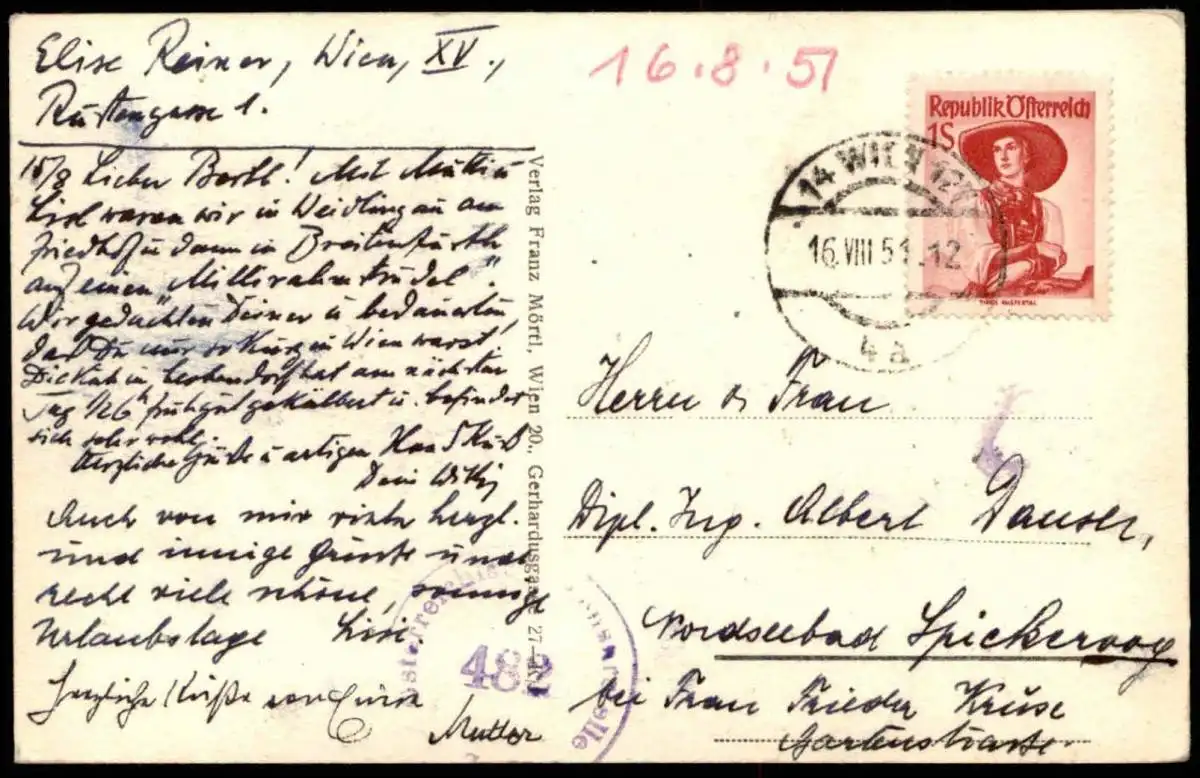 Elise Reiner, Wien, XV.,
Rustengasse 1.
16.8.51
15/8 Lieber Bertl! Mit Mutti u
Lisl waren wir in Weidlingau am
Friedhof u dann in Breitenfurth
auf einen „Millirahmstrudel".
Wir gedachten Deiner u bedauerten,
daß Du nur so kurz in Wien warst.
Die Kuh in Leobendorf hat am nächsten
Tag 1/2 6h früh gut gekälbert u. befindet
sich sehr wohl.
Herzliche Grüße u artigen Handkuß
Dein Willy
Auch von mir viele herzl.
und innige Grüsse und
recht viele schöne, sonnige
Urlaubstage Lisl.
Herzliche Küße von Eurer
Mutter
Verlag Franz Mörtl, Wien 20., Gerhardusgasse 27
Republik Österreich
1S
14 WIEN
16.VIII 51.12
4a
Herrn & Frau
Dipl. Ing. Albert Dauscher,
Nordseebad Spickeroog
bei Frau Frieder Kruse
Gartenstrasse
482